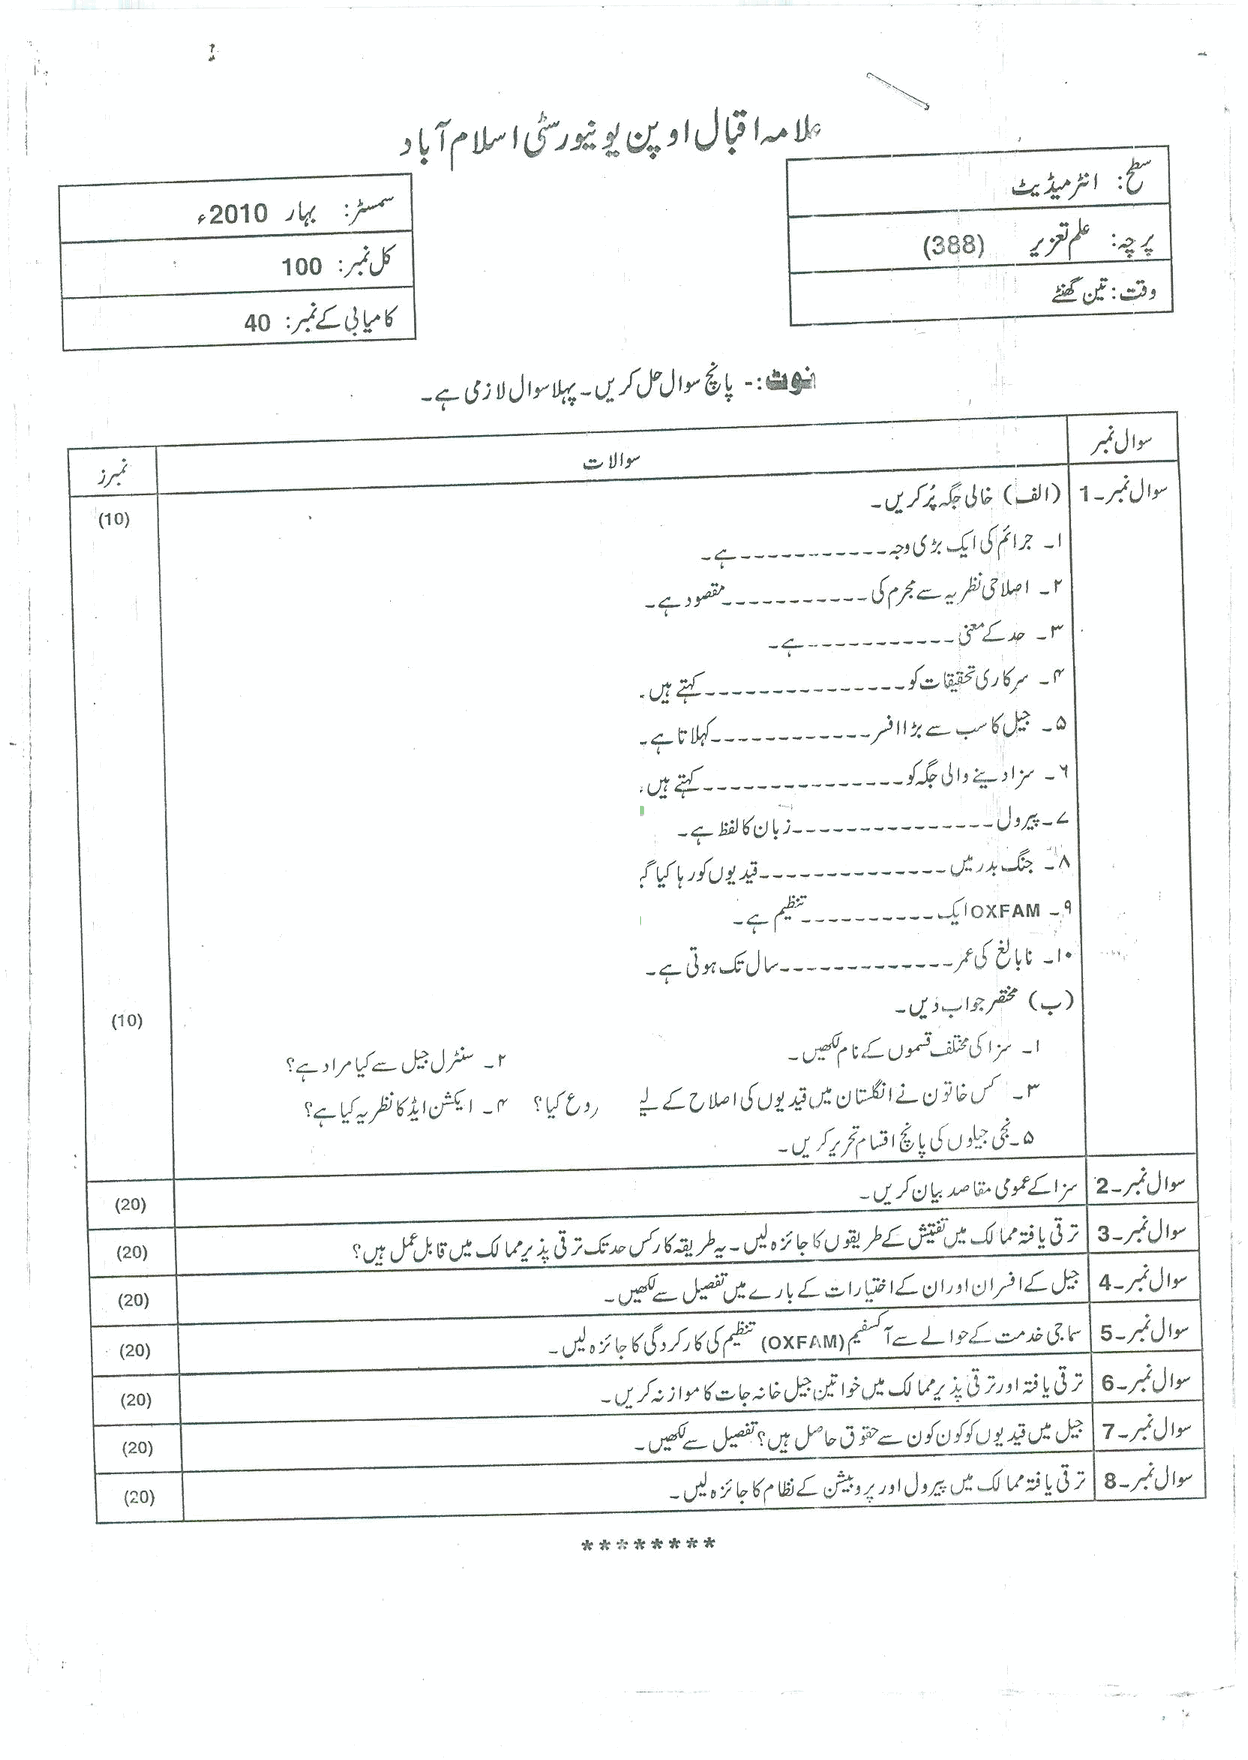 علامہ اقبال اوپن یونیورسٹی اسلام آباد
سطح: انٹرمیڈیٹ
پرچہ: علم تعزیر (388)
وقت: تین گھنٹے
سمسٹر: بہار 2010ء
کل نمبر: 100
کامیابی کے نمبر: 40
نوٹ:- پانچ سوال حل کریں۔ پہلا سوال لازمی ہے۔
سوال نمبر سوالات نمبرز
سوال نمبر۔1 (الف) خالی جگہ پُر کریں۔ (10)
۱۔ جرائم کی ایک بڑی وجہ ----------- ہے۔
۲۔ اصلاحی نظریہ سے مجرم کی ----------- مقصود ہے۔
۳۔ حد کے معنی ----------- ہے۔
۴۔ سرکاری تحقیقات کو --------------- کہتے ہیں۔
۵۔ جیل کا سب سے بڑا افسر ------------ کہلاتا ہے۔
۶۔ سزا دینے والی جگہ کو --------------- کہتے ہیں۔
۷۔ پیرول --------------- زبان کا لفظ ہے۔
۸۔ جنگ بدر میں -------------- قیدیوں کو رہا کیا
۹۔ OXFAM ایک ---------- تنظیم ہے۔
۱۰۔ نابالغ کی عمر ------------- سال تک ہوتی ہے۔
(ب) مختصر جواب دیں۔ (10)
۱۔ سزا کی مختلف قسموں کے نام لکھیں۔ ۲۔ سنٹرل جیل سے کیا مراد ہے؟
۳۔ کس خاتون نے انگلستان میں قیدیوں کی اصلاح کے لیے روع کیا؟ ۴۔ ایکشن ایڈ کا نظریہ کیا ہے؟
۵۔ نجی جیلوں کی پانچ اقسام تحریر کریں۔
سوال نمبر۔2 سزا کے عمومی مقاصد بیان کریں۔ (20)
سوال نمبر۔3 ترقی یافتہ ممالک میں تفتیش کے طریقوں کا جائزہ لیں۔ یہ طریقہ کار کس حد تک ترقی پذیر ممالک میں قابل عمل ہیں؟ (20)
سوال نمبر۔4 جیل کے افسران اور ان کے اختیارات کے بارے میں تفصیل سے لکھیں۔ (20)
سوال نمبر۔5 سماجی خدمت کے حوالے سے آکسفیم (OXFAM) تنظیم کی کارکردگی کا جائزہ لیں۔ (20)
سوال نمبر۔6 ترقی یافتہ اور ترقی پذیر ممالک میں خواتین جیل خانہ جات کا موازنہ کریں۔ (20)
سوال نمبر۔7 جیل میں قیدیوں کو کون کون سے حقوق حاصل ہیں؟ تفصیل سے لکھیں۔ (20)
سوال نمبر۔8 ترقی یافتہ ممالک میں پیرول اور پروبیشن کے نظام کا جائزہ لیں۔ (20)
********